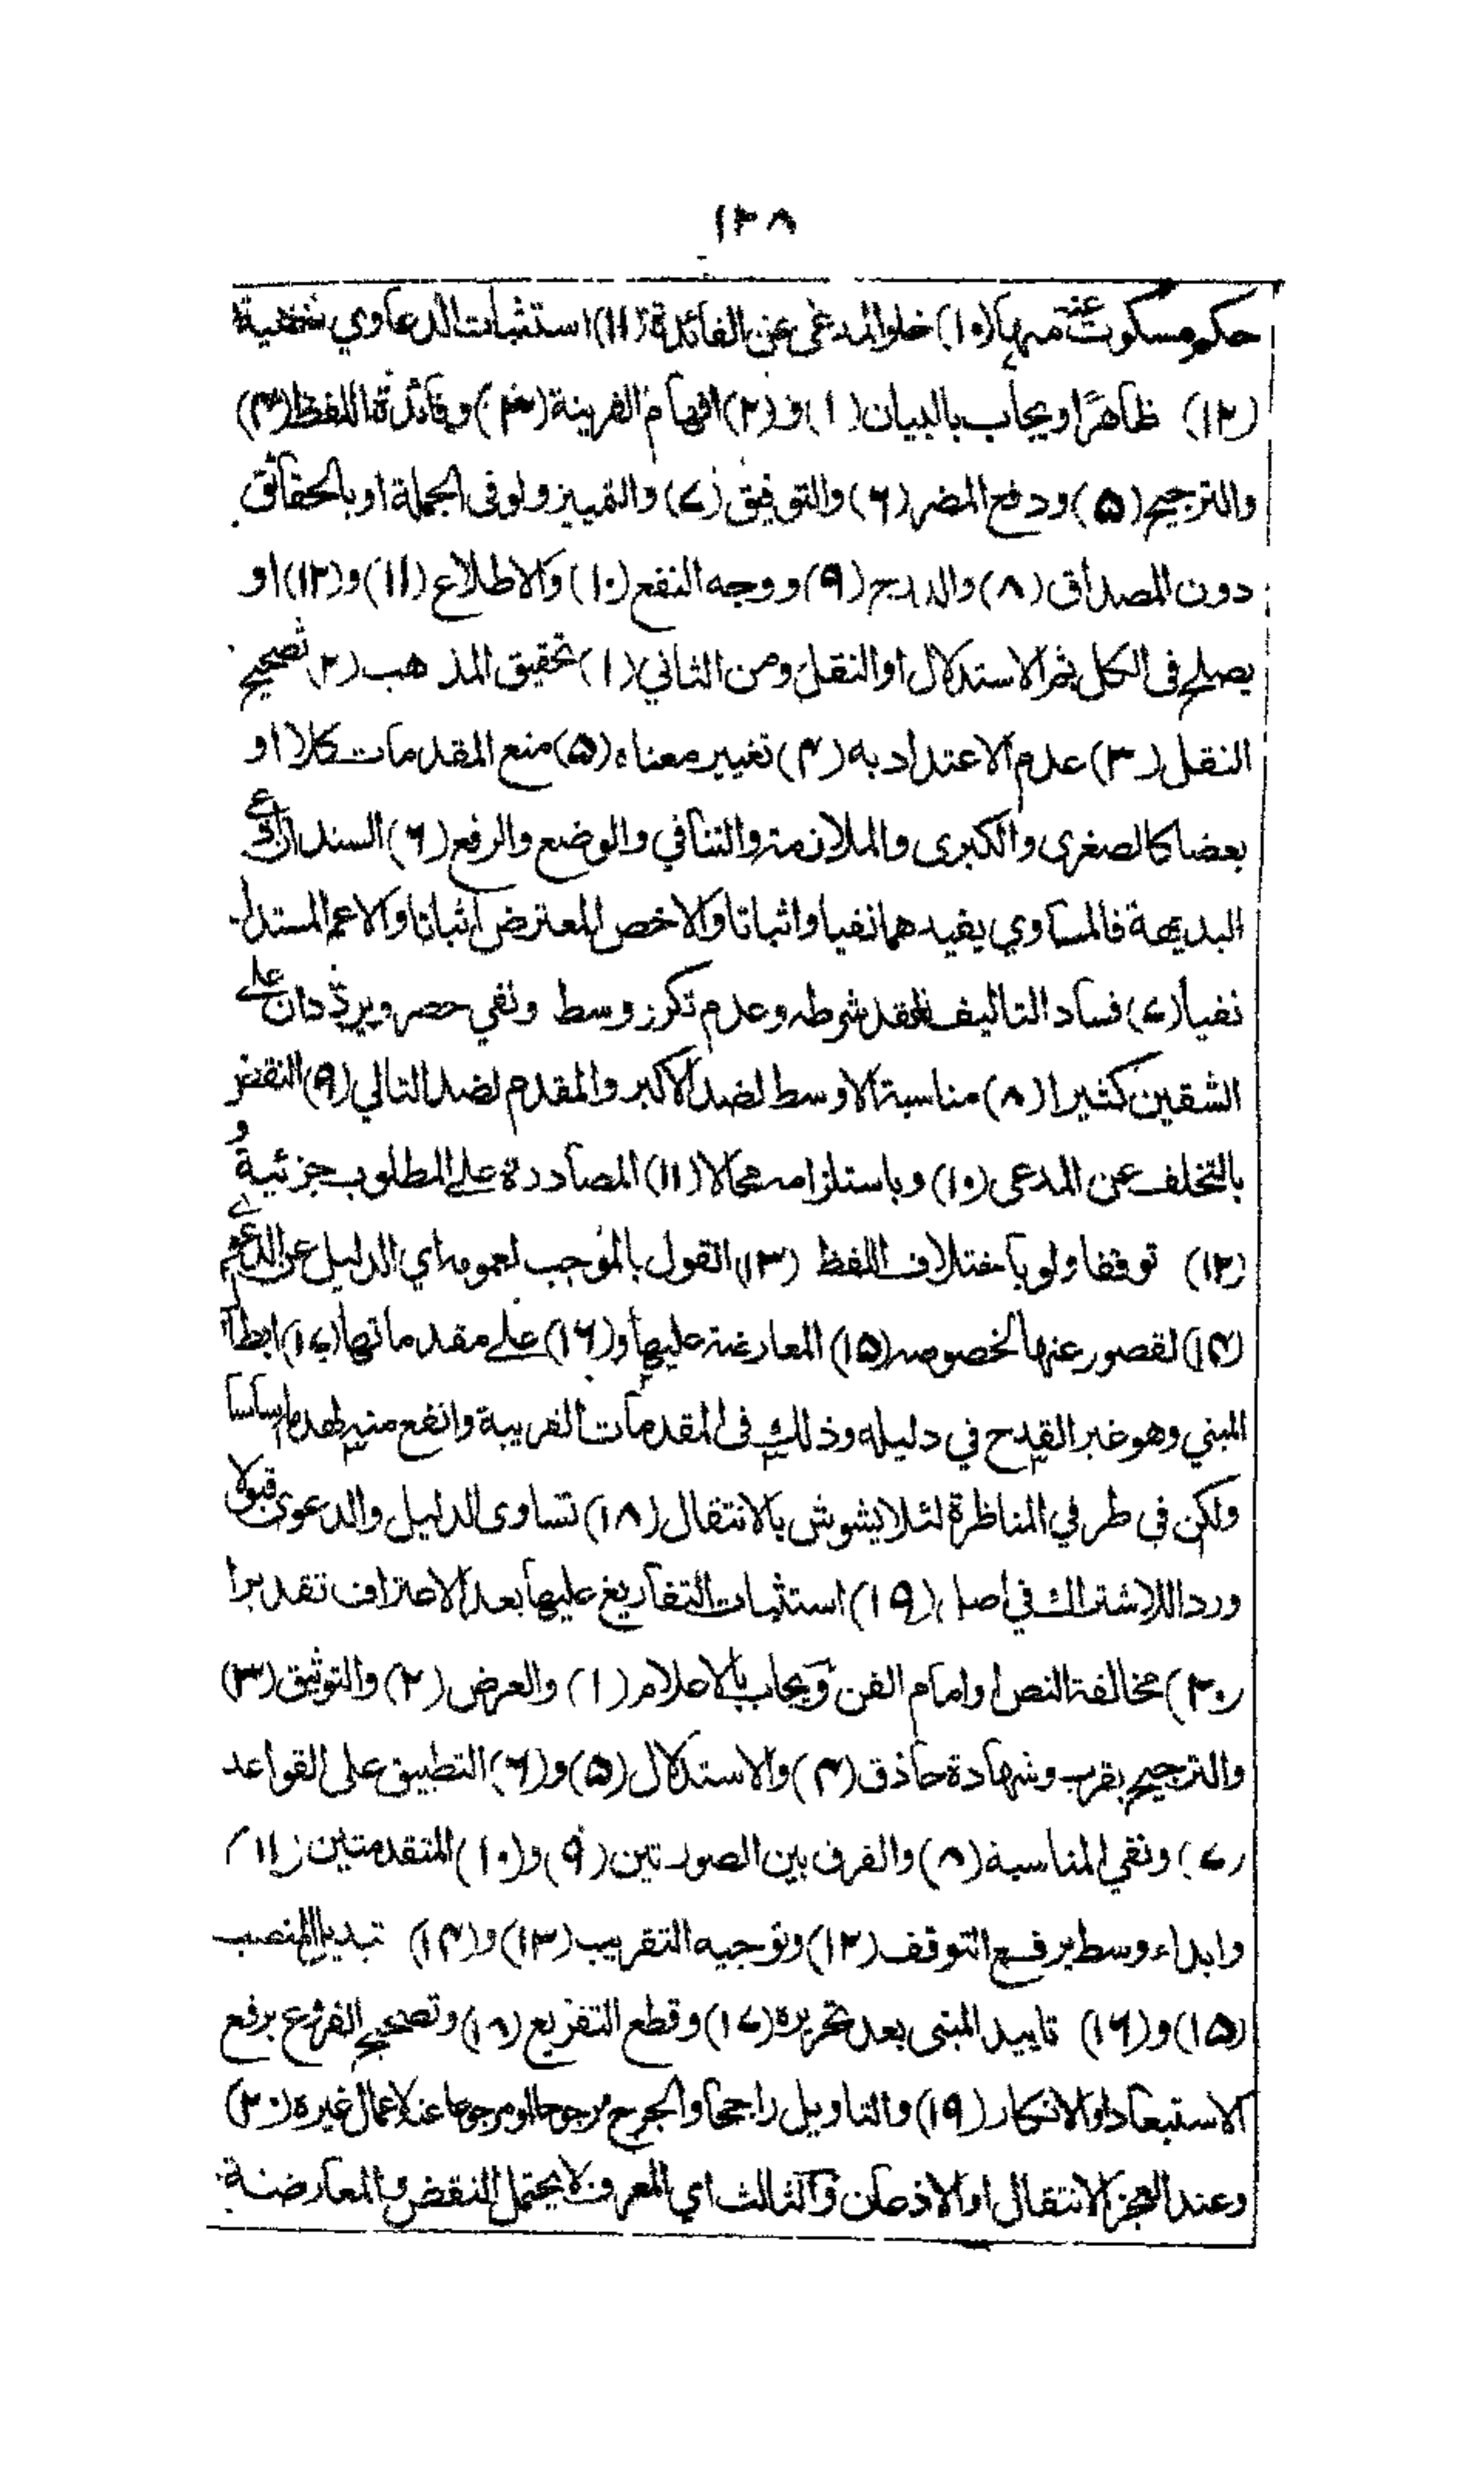 ١٢٨
حكم مسكوت عنه منها (١٠) خلو المدعى عن الفائدة (١١) استثبات الدعاوي
(١٢) ظاهرًا ويجاب بالبيان (١) و (٢) افهام القرينة (٣) وفائدة اللفظ (٤)
والترجيح (٥) ودفع المضر (٦) والتوفيق (٧) والتمييز ولو فى الجملة او بالحقائق
دون المصداق (٨) والدرج (٩) ووجه النفع (١٠) والاطلاع (١١) و (١٢) او
يصلح فى الكل ثم الاستدلال او النقل ومن الثاني (١) تحقيق المذهب (٢) تصحيح
النقل (٣) عدم الاعتداد به (٤) تغيير معناه (٥) منع المقدمات كلا او
بعضا كالصغرى والكبرى والملازمة والتنافي والوضع والرفع (٦) السند
البديهة فالمساوي يفيدهما نفيا واثباتا والاخص للمعترض اثباتا والاعم للمستدل
نفيا (٧) فساد التاليف لفقد شرطه وعدم تكرر وسط ونفي حصر ويردان على
الشقين كثيرا (٨) مناسبة الاوسط لضد الاكبر والمقدم لضد التالي (٩) النقض
بالتخلف عن المدعى (١٠) وباستلزامه محالا (١١) المصادرة على المطلوب جزئية و
(١٢) توقفا ولو باختلاف اللفظ (١٣) القول بالموجب لعمومه اي الدليل عن المدعى
(١٤) لقصور عنها لخصوصه (١٥) المعارضة عليها و (١٦) على مقدماتها (١٧) ابطال
المبني وهو غير القدح في دليله وذلك فى المقدمات القريبة وانفع منه لهدم اساسا
ولكن فى طرفي المناظرة لئلا يشوش بالانتقال (١٨) تساوى الدليل والدعوى قبولا
وردا للاشتراك في اصل (١٩) استثبات التفاريع عليها بعد الاعتراف تقديرا
(٢٠) مخالفة النص او امام الفن ويجاب بالاعلام (١) والعرض (٢) والتوثيق (٣)
والترجيح بقرب وشهادة حاذق (٤) والاستدلال (٥) و (٦) التطبيق على القواعد
(٧) ونفي المناسبة (٨) والفرق بين الصورتين (٩) و (١٠) المتقدمتين (١١)
وابداء وسط يرفع التوقف (١٢) وتوجيه التقريب (١٣) و (١٤) تبديل المنصب
(١٥) و (١٦) تاييد المبنى بعد تحريره (١٧) وقطع التفريع (١٨) وتصحيح الفرع برفع
الاستبعاد او الانكار (١٩) والتاويل راجحا والجرح مرجوحا او مرجوعا عند لاعمال غيره (٢٠)
وعند العجز الانتقال او الاذعان والثالث اي المعرف لا يحتمل النقض والمعارضة